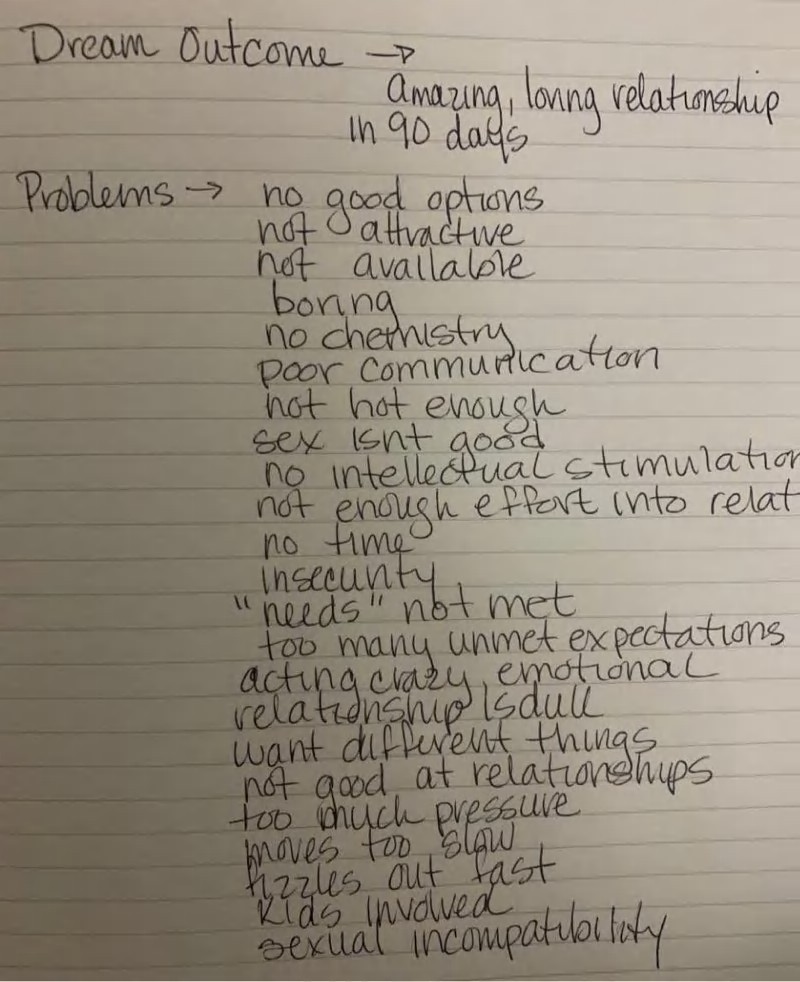 Dream Outcome →
amazing, loving relationship
in 90 days
Problems → no good options
not attractive
not available
boring
no chemistry
poor communication
not hot enough
sex isnt good
no intellectual stimulation
not enough effort into relat
no time
insecurity
"needs" not met
too many unmet expectations
acting crazy, emotional
relationship is dull
want different things
not good at relationships
too much pressure
moves too slow
fizzles out fast
kids involved
sexual incompatibility